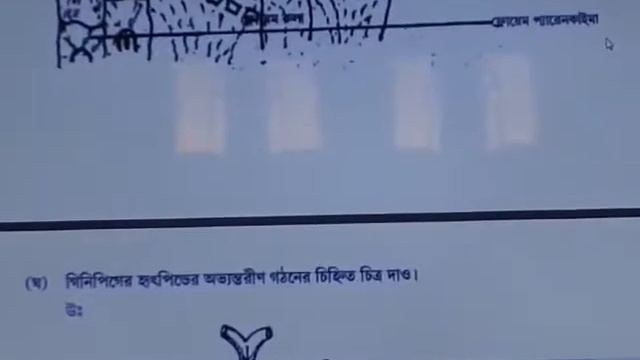 ফ্লোয়েম প্যারেনকাইমা
(ঘ) গিনিপিগের হৃৎপিণ্ডের অভ্যন্তরীণ গঠনের চিহ্নিত চিত্র দাও।
উঃ